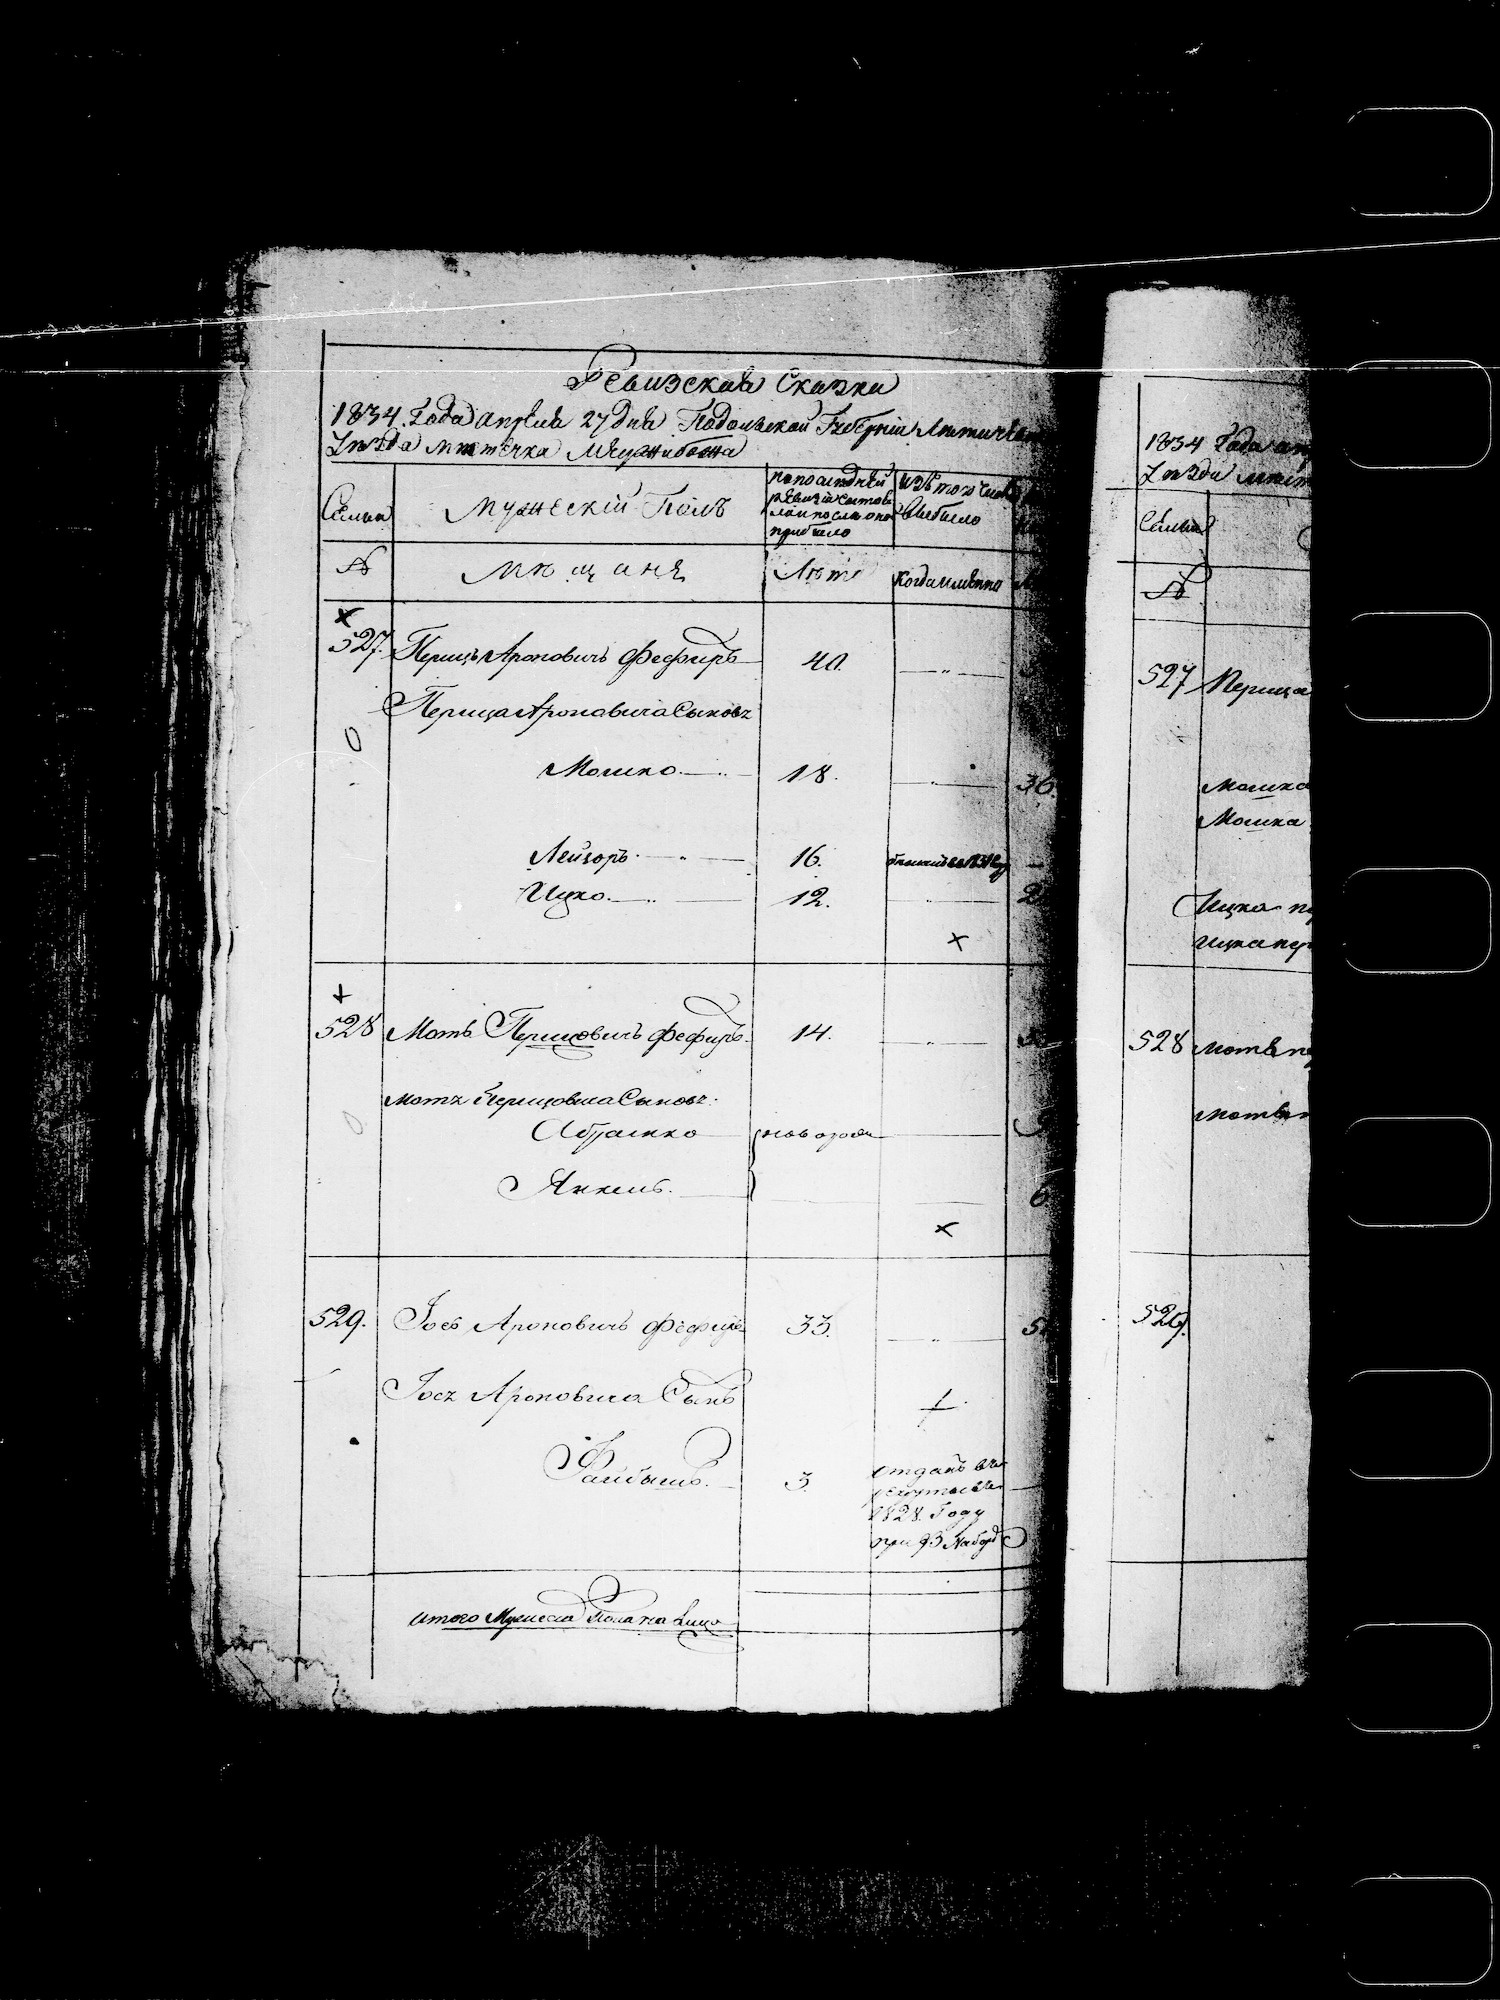 Ревизская Сказка
1834. Года апреля 27 дня Подольской Губернии Литичев
Уезда местечка Меджибожа
Семьи
Мужескій Полъ
по последней
ревизіи состоя
ло и после оной
прибыло
Изъ того числа
Выбыло
№
Мѣщане
Лѣта
Когда именно
527. Перецъ Ароновичъ Фефиръ 40.
Переца Ароновича Сыновъ
Мошко. 18. 36.
Лейзоръ. 16.
Ицко. 12. 2
528 Моть Перецовичъ Фефиръ. 14.
Моть Перецовича Сыновъ.
Абрамко новорожд
Янкель. 6
529. Іось Ароновичъ Фефиръ 33. 5
Іось Ароновича Сынъ
Файбишъ. 3.
отданъ въ
рекруты въ
1828. Году
при 93 Наборѣ
итого Мужеска Пола на Лицо
1834 Года ап
Уезда мест
Семьи
№
527 Переца
Мошка
Мошка
Ицка пе
Ицка пер
528 Моть пе
Моть п
529.